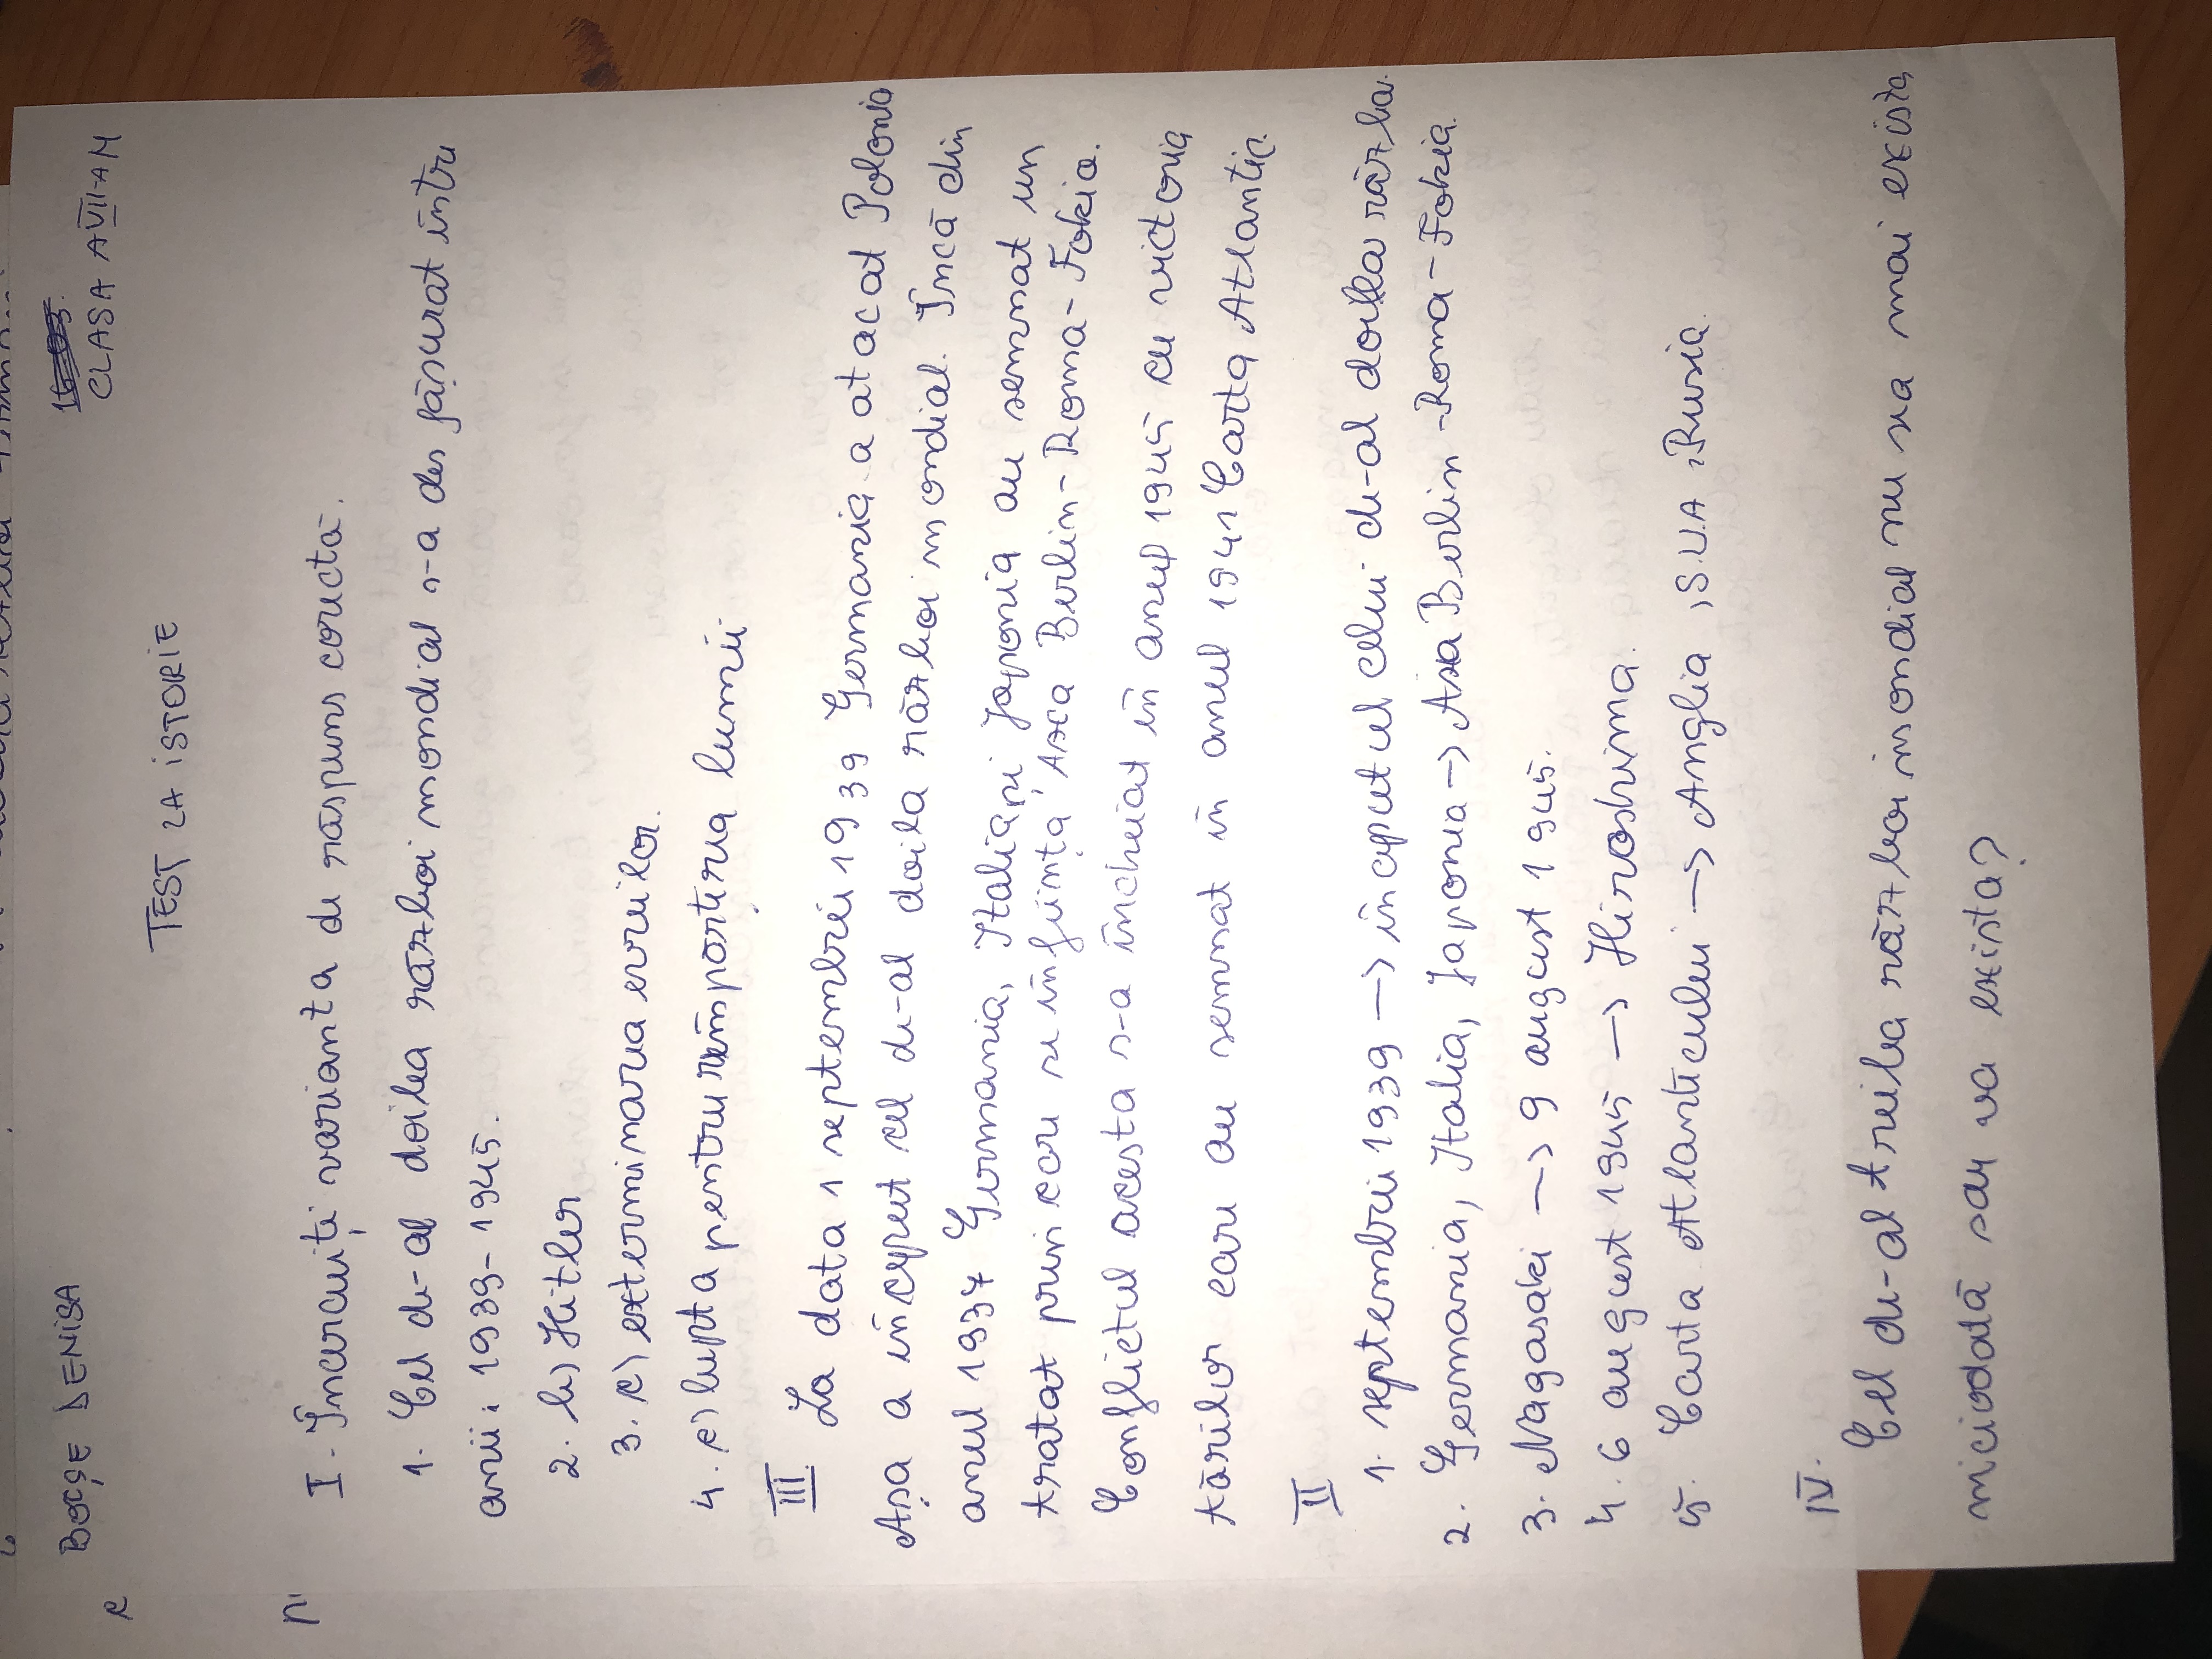 BOCȘE DENISA
CLASA A VII-A M
TEST LA ISTORIE
I. Încercuiți varianta de răspuns corectă.
1. Cel de-al doilea război mondial s-a desfășurat între
anii: 1939-1945.
2. b) Hitler
3. c) exterminarea evreilor.
4. c) lupta pentru reîmpărțirea lumii
III La data 1 septembrie 1939 Germania a atacat Polonia
Așa a început cel de-al doilea război mondial. Încă din
anul 1937 Germania, Italia și Japonia au semnat un
tratat prin care se înființa Axa Berlin-Roma-Tokia.
Conflictul acesta s-a încheiat în anul 1945 cu victoria
tărilor care au semnat în anul 1941 Carta Atlantic.
II
1. septembrie 1939 → începutul celui de-al doilea războ.
2. Germania, Italia, Japonia → Axa Berlin-Roma-Tokia.
3. Nagasaki → 9 august 1945.
4. 6 august 1945 → Hiroshima.
5. Carta Atlanticului → Anglia, S.U.A, Rusia.
IV. Cel de-al treilea război mondial nu va mai exista
niciodată sau va exista?